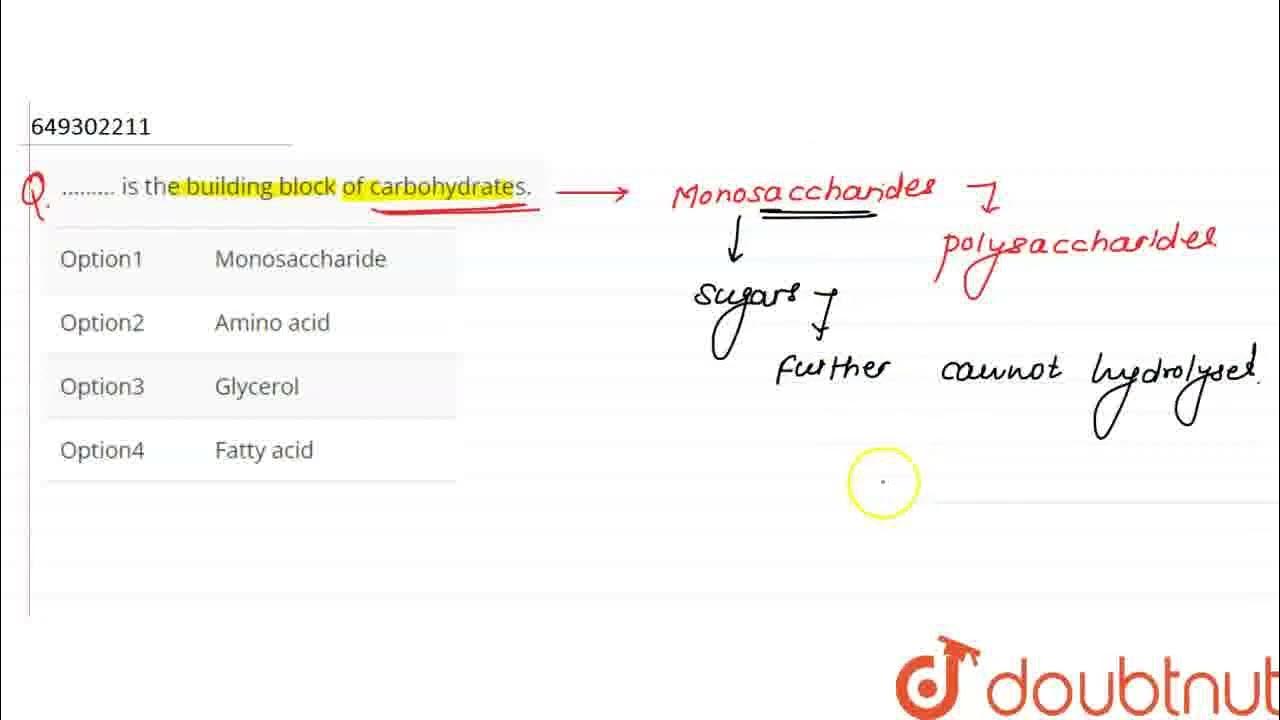 649302211
Q. ......... is the building block of carbohydrates.
Option1 Monosaccharide
Option2 Amino acid
Option3 Glycerol
Option4 Fatty acid
Monosaccharides
polysaccharides
sugars
Further cannot hydrolysed.
doubtnut